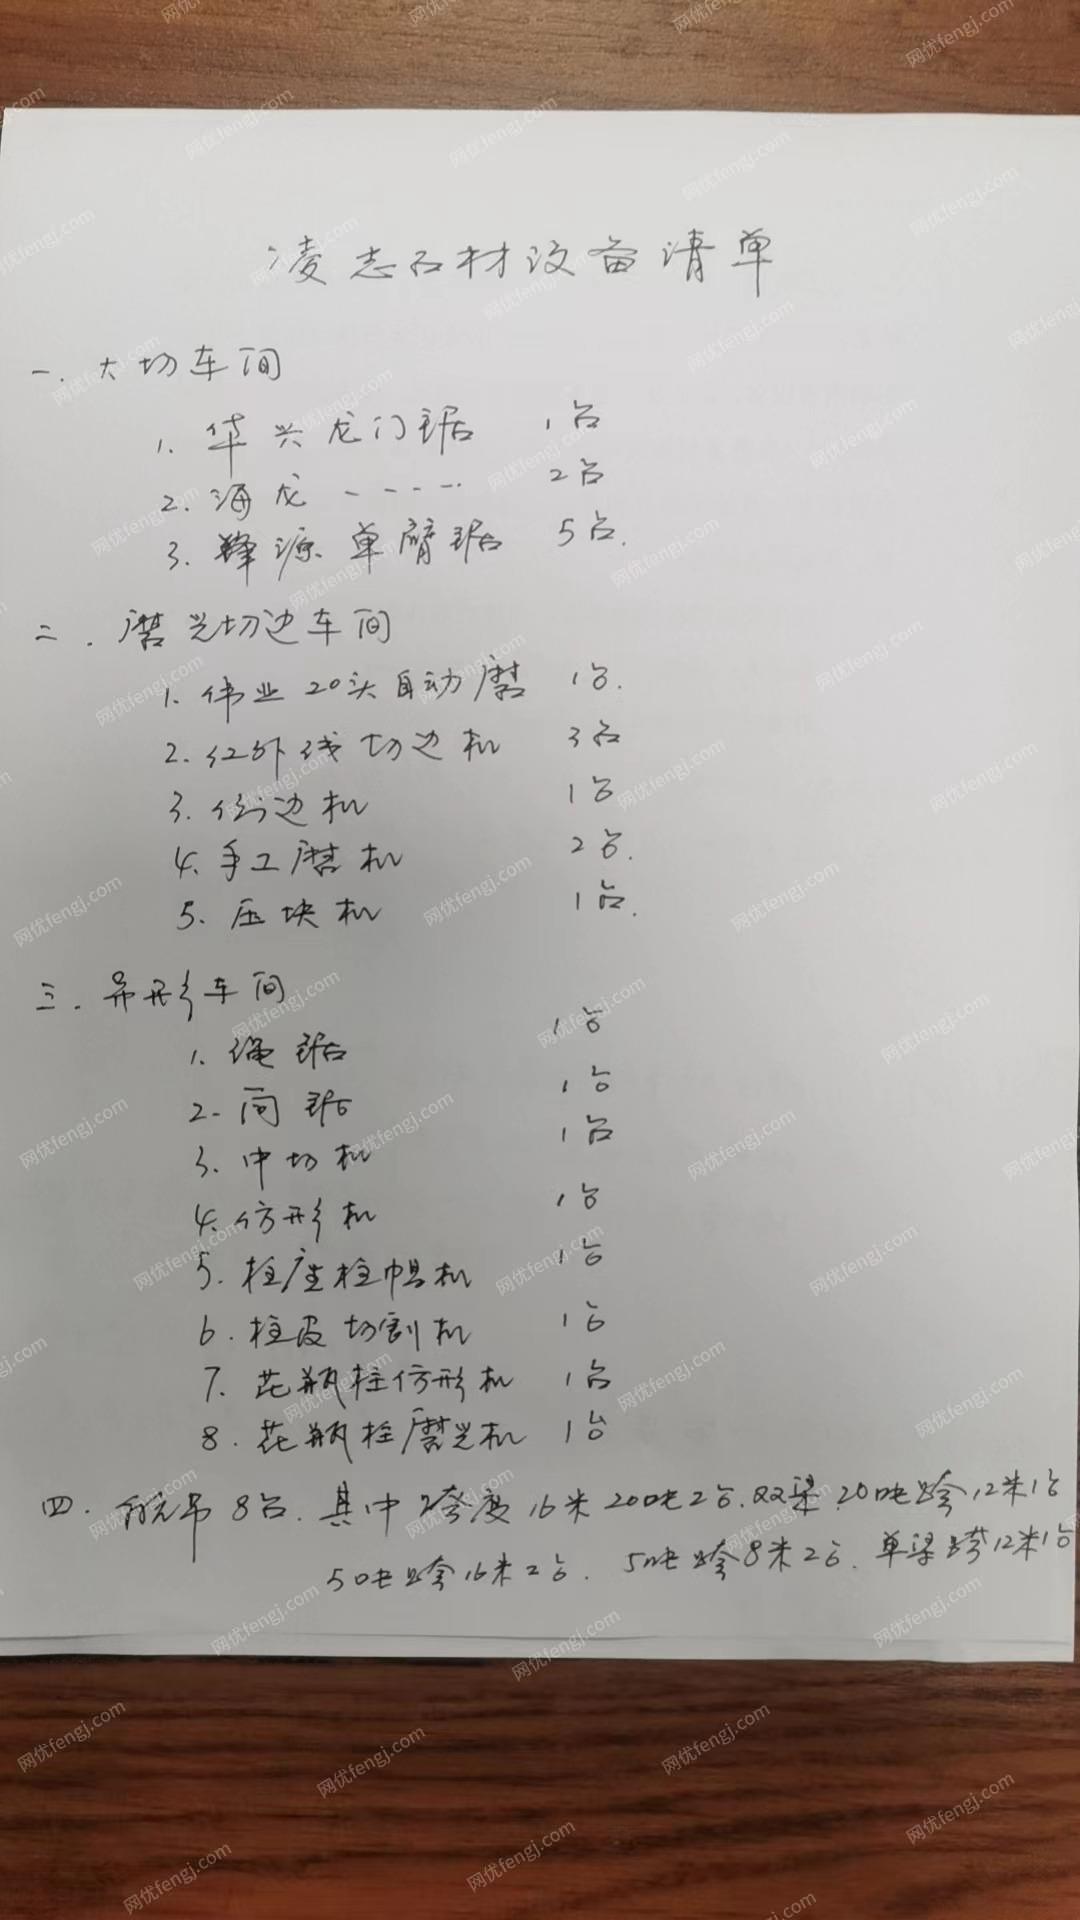 凌志石材设备清单
一. 大切车间
1. 华兴龙门锯 1台
2. 海龙 - - - - -- 2台
3. 锋源单臂锯 5台.
二. 磨光切边车间
1. 伟业20头自动磨 1台.
2. 红外线切边机 3台
3. 倒边机 1台
4. 手工磨机 2台.
5. 压块机 1台.
三. 异形车间
1. 绳锯 1台
2. 筒锯 1台
3. 中切机 1台
4. 仿形机 1台
5. 柱座柱帽机 1台
6. 柱皮切割机 1台
7. 花瓶柱仿形机 1台
8. 花瓶柱磨光机 1台
四. 航吊8台. 其中跨度16米20吨2台. 双梁20吨跨12米1台
50吨跨16米2台. 5吨跨8米2台. 单梁跨12米1台
网优fengj.com